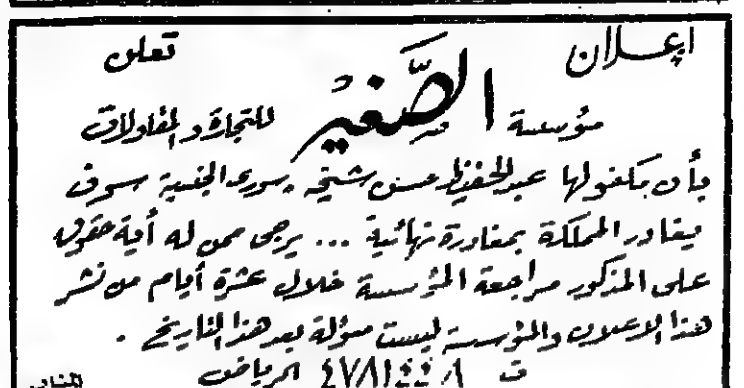 إعلان
تعلن
مؤسسة الصَّغِيْر للتجارة والمقاولات
بأن مكفولها عبدالحفيظ حسن شيخه سوري الجنسية سوف
يغادر المملكة بمغادرة نهائية ... يرجى ممن له أية حقوق
على المذكور مراجعة المؤسسة خلال عشرة أيام من نشر
هذا الاعلان والمؤسسة ليست مسؤلة بعد هذا التاريخ .
ت الرياض